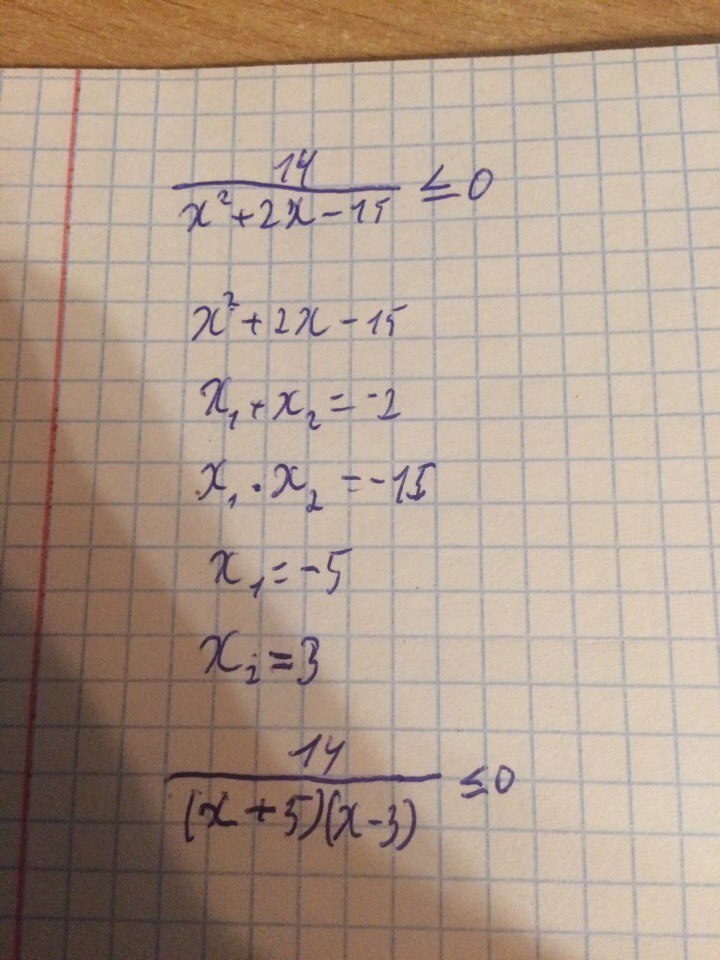 14
x² + 2x - 15 ≤ 0
x² + 2x - 15
x₁ + x₂ = -2
x₁ · x₂ = -15
x₁ = -5
x₂ = 3
14
(x + 5)(x - 3) ≤ 0